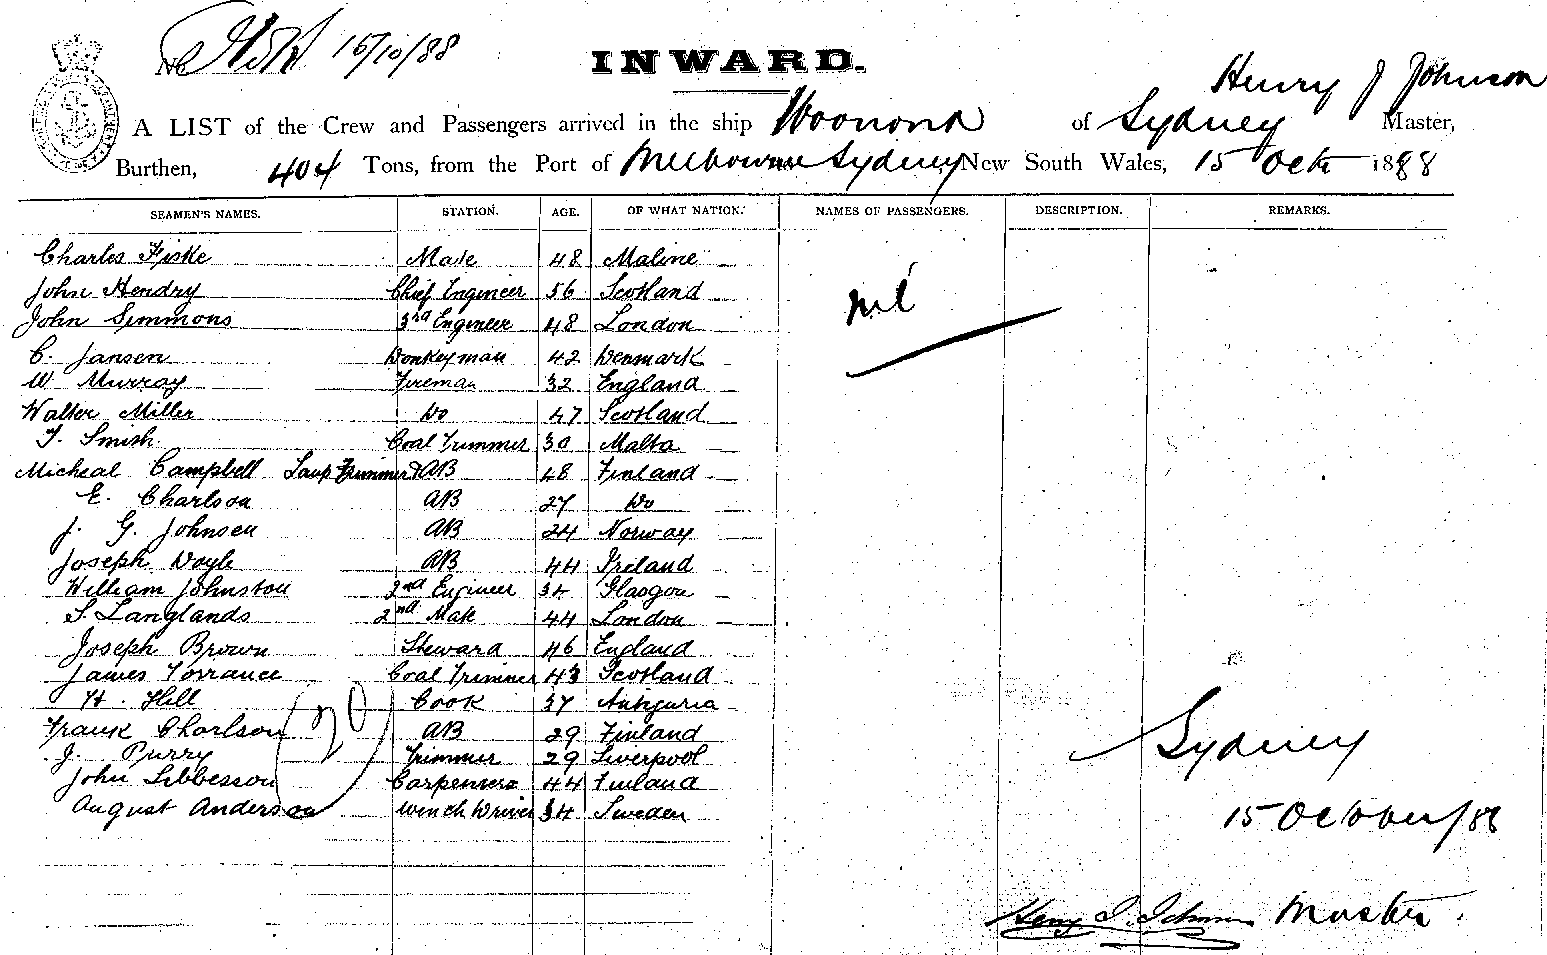 15/10/88
INWARD.
Henry J Johnson
A LIST of the Crew and Passengers arrived in the ship Woonona of Sydney Master,
Burthen, 404 Tons, from the Port of Melbourne Sydney New South Wales, 15 Octr 1888
SEAMEN'S NAMES. STATION. AGE. OF WHAT NATION. NAMES OF PASSENGERS. DESCRIPTION. REMARKS.
Charles Fiske Mate 48 Maline
John Hendry Chief Engineer 56 Scotland
nil
John Simmons 3rd Engineer 48 London
C. Jansen Donkeyman 42 Denmark
W Murray Fireman 32 England
Walter Miller Do 47 Scotland
T. Smith Coal Trimmer 30 Malta
Micheal Campbell Lamp Trimmer & AB 48 Finland
E. Charlson AB 27 Do
J. G. Johnsen AB 24 Norway
Joseph Doyle AB 44 Ireland
William Johnston 2nd Engineer 34 Glasgow
S. Langlands 2nd Mate 44 London
Joseph Brown Steward 46 England
James Torrance Coal Trimmer 43 Scotland
H. Hill Cook 37 Antiguria
(20)
Frank Charlson AB 29 Finland
J. Purry Trimmer 29 Liverpool
Sydney
John Carpenter 44 Finland
August Anderson Winch Driver 34 Sweden
15 October/88
Henry J. Johnson Master.